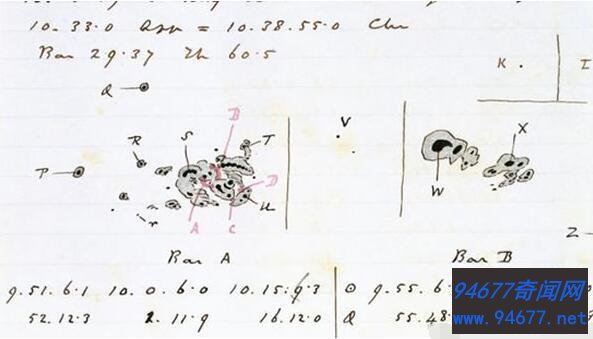 10.33.0 App = 10.38.55.0 Chr
Bar 29.37 Th 60.5
K I
Q
B
V X
R S T
P
D
W
U
A C
Z
Bar A Bar B
9.51.6.1 10.0.6.0 10.15.9.3 ⊙ 9.55.6
52.12.3 2.11.9 16.12.0 Q 55.48
94677奇闻网
www.94677.net